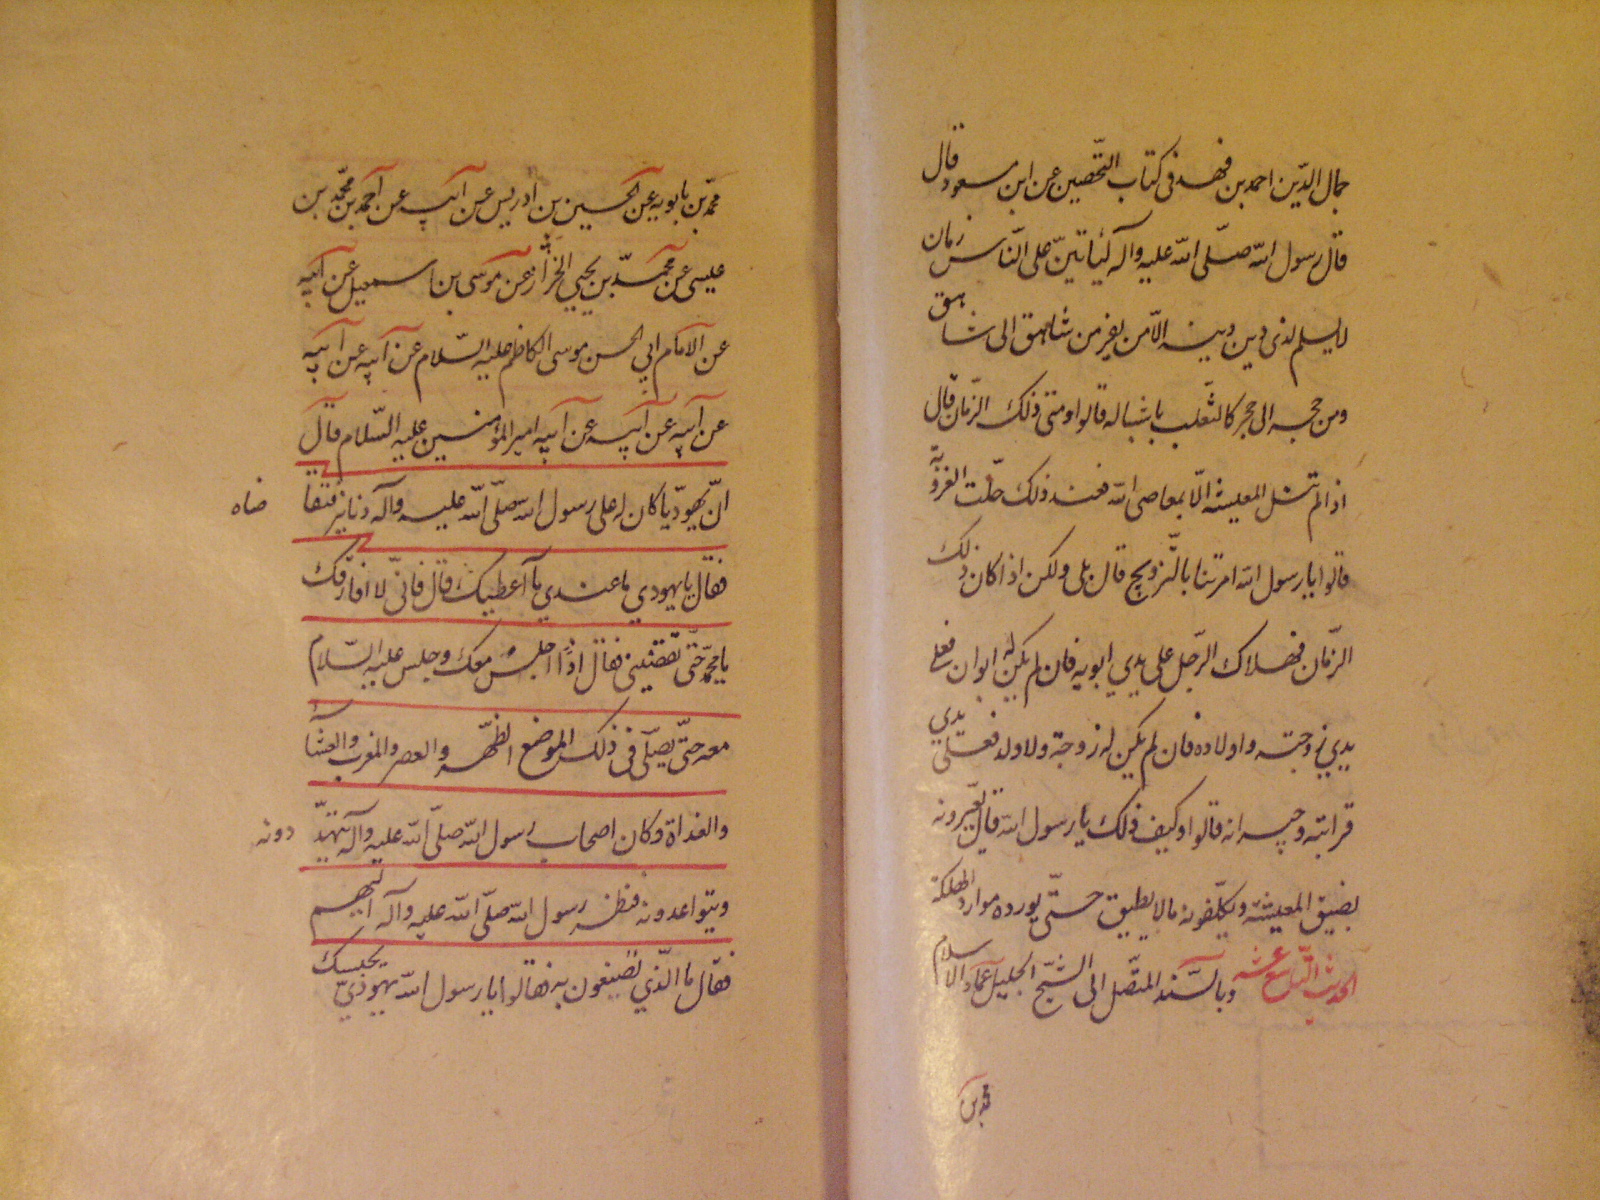 جمال الدّين احمد بن فهد فى كتاب التّحصين عن ابن مسعود قال
قال رسول الله صلّى الله عليه وآله ليأتينّ على النّاس زمان
لا يسلم لذى دين دينه الّا من يفرّ من شاهق الى شاهق
ومن حجر الى حجر كالثّعلب باشباله قالوا ومتى ذلك الزّمان قال
اذا لم تنل المعيشة الّا بمعاصى الله فعند ذلك حلّت العزوبة
قالوا يا رسول الله امرتنا بالتّزويج قال بلى ولكن اذا كان ذلك
الزّمان فهلاك الرّجل على يدي ابويه فان لم يكن له ابوان فعلى
يدي زوجته واولاده فان لم يكن له زوجة ولا ولد فعلى يدي
قرابته وجيرانه قالوا وكيف ذلك يا رسول الله قال يعيّرونه
بضيق المعيشة ويكلّفونه ما لا يطيق حتّى يوردوه موارد الهلكة
الحديث التّاسع عشر وبالسّند المتّصل الى الشّيخ الجليل عماد الاسلام
محمّد بن
محمّد بن بابويه عن الحسين بن ادريس عن ابيه عن احمد بن محمّد بن
عيسى عن محمّد بن يحيي الخزّاز عن موسى بن اسمعيل عن ابيه
عن الامام ابي الحسن موسى الكاظم عليه السّلام عن ابيه عن ابيه
عن ابيه عن ابيه عن ابيه امير المؤمنين عليه السّلام قال
انّ يهوديّا كان له على رسول الله صلّى الله عليه وآله دنانير فتقا
ضاه
فقال يا يهودي ما عندي ما اعطيك قال فانّي لا افارقك
يا محمّد حتّى تقضيني فقال اذًا اجلس معك وجلس عليه السّلام
معه حتّى صلّى فى ذلك الموضع الظّهر والعصر والمغرب والعشآء
والغداة وكان اصحاب رسول الله صلّى الله عليه وآله يتهدّ
دونه
ويتواعدونه فنظر رسول الله صلّى الله عليه وآله اليهم
فقال ما الّذي تصنعون به فقالوا يا رسول الله يهوديّ يحبسك